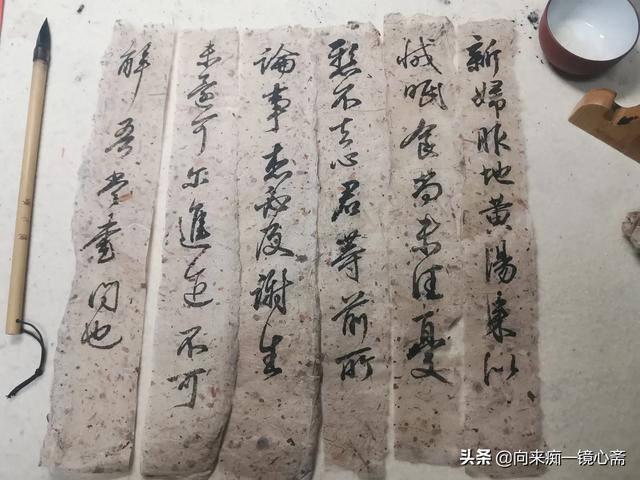 新婦服地黄湯來似
減眠食尚未佳憂
懸不去心君等前所
論事想必及謝生
未還可尔進退不可
解吾當書問也
头条 @向来痴一镜心斋